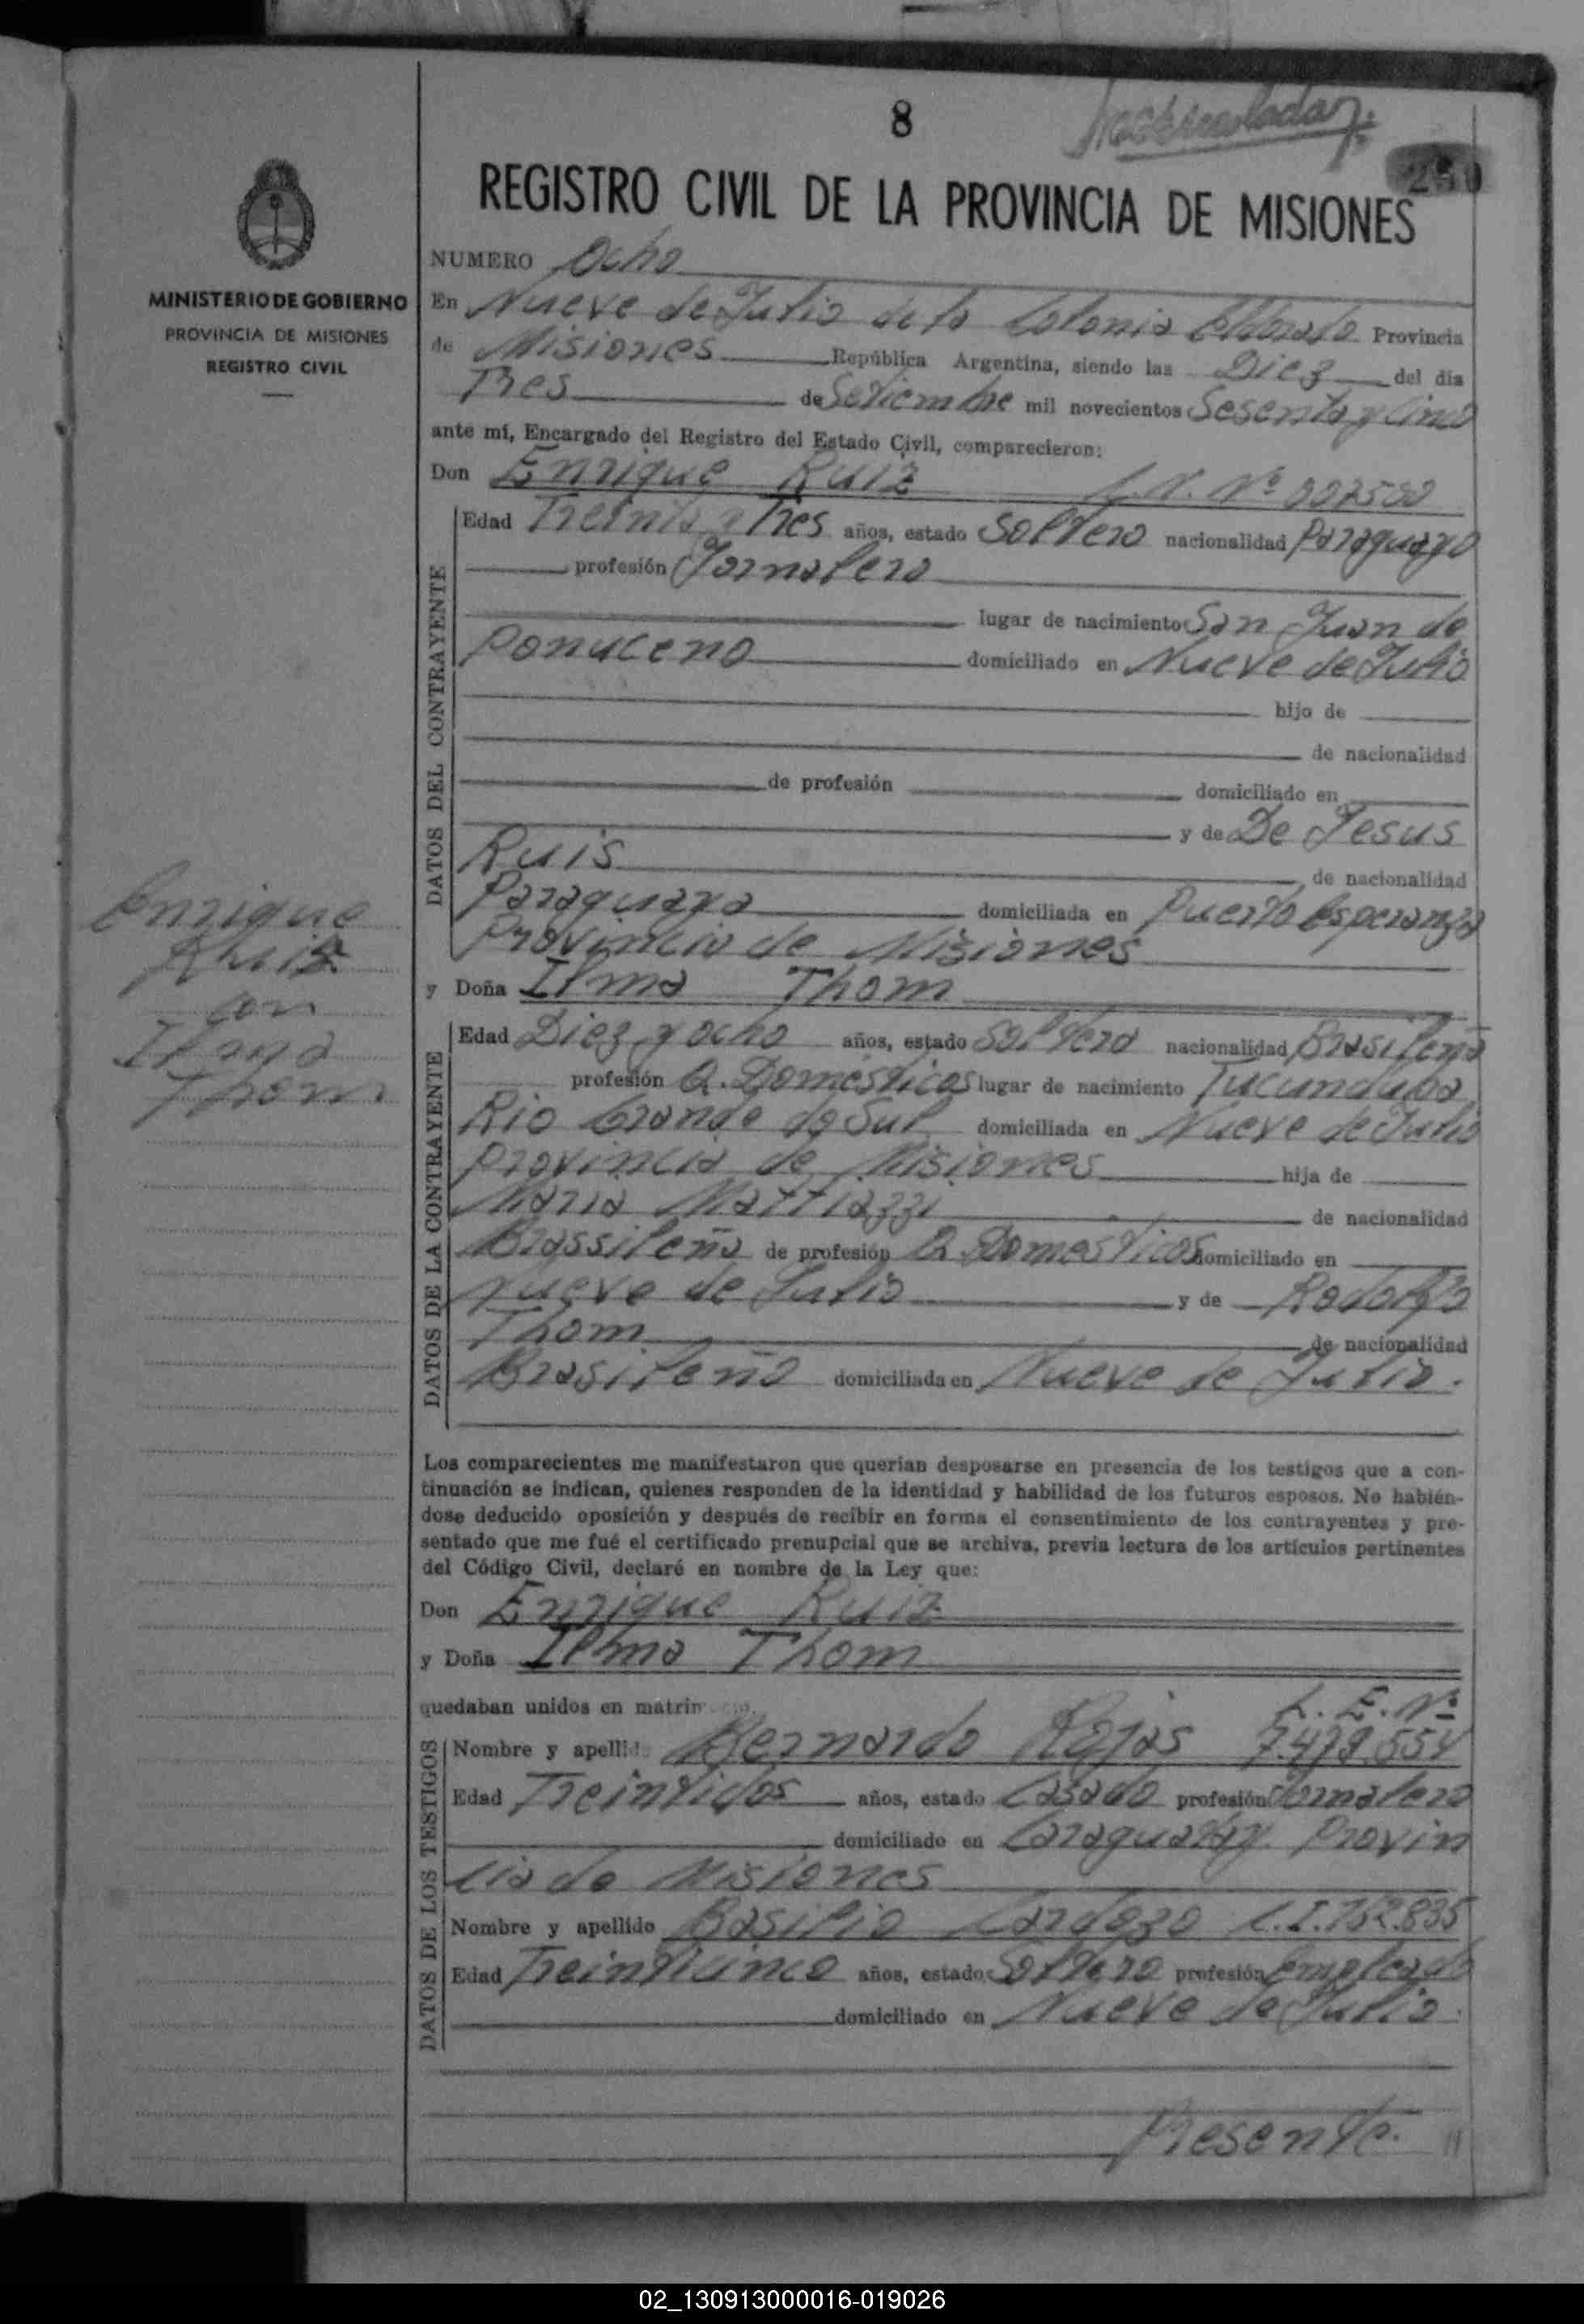 8
REGISTRO CIVIL DE LA PROVINCIA DE MISIONES
MINISTERIO DE GOBIERNO
PROVINCIA DE MISIONES
REGISTRO CIVIL
NUMERO Ocho
En Nueve de Julio de la Colonia Eldorado Provincia
de Misiones República Argentina, siendo las Diez del día
Tres de Setiembre mil novecientos Sesenta y Cinco
ante mí, Encargado del Registro del Estado Civil, comparecieron:
Don Enrique Ruiz
DATOS DEL CONTRAYENTE
Edad Treinta y Tres años, estado Soltero nacionalidad Paraguayo
profesión Jornalero
lugar de nacimiento San Juan de
Ponuceno domiciliado en Nueve de Julio
hijo de
de nacionalidad
de profesión domiciliado en
y de De Jesus
Ruis de nacionalidad
Paraguaya domiciliada en Puerto Esperanza
Provincia de Misiones
Enrique
Ruiz
con
Ilma
Thom
y Doña Ilma Thom
DATOS DE LA CONTRAYENTE
Edad Diez y ocho años, estado Soltera nacionalidad Brasileña
profesión Q. Domésticos lugar de nacimiento Tucunduba
Rio Grande do Sul domiciliada en Nueve de Julio
Provincia de Misiones hija de
Maria Mattiazzi de nacionalidad
Brassileña de profesión Q. Domesticos domiciliado en
nueve de Julio y de Rodolfo
Thom de nacionalidad
Brasileño domiciliada en Nueve de Julio.
Los comparecientes me manifestaron que querían desposarse en presencia de los testigos que a con-
tinuación se indican, quienes responden de la identidad y habilidad de los futuros esposos. No habién-
dose deducido oposición y después de recibir en forma el consentimiento de los contrayentes y pre-
sentado que me fué el certificado prenupcial que se archiva, previa lectura de los artículos pertinentes
del Código Civil, declaré en nombre de la Ley que:
Don Enrique Ruiz
y Doña Ilma Thom
quedaban unidos en matrimonio.
L. E. Nº
DATOS DE LOS TESTIGOS
Nombre y apellido Bernardo Rojas 7.479.554
Edad Treintidos años, estado Casado profesión Jornalero
domiciliado en Caraguatay Provin
cia de Misiones
Nombre y apellido Basilio Cardozo C.I. 762.835
Edad Treinticinco años, estado Soltero profesión Empleado
domiciliado en Nueve de Julio.
Presente.
02_130913000016-019026